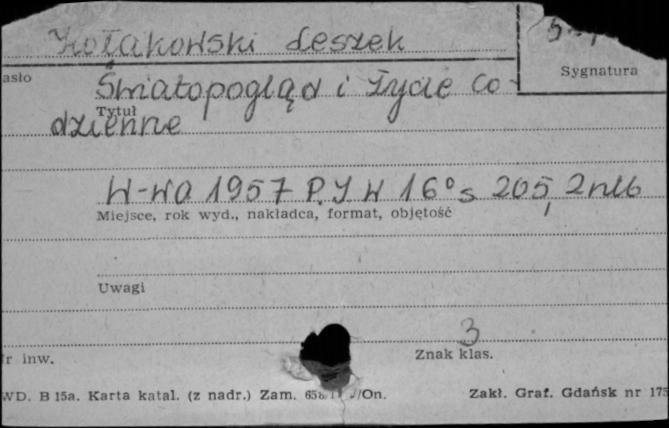 Kołakowski Leszek
Sygnatura
asło
Światopogląd i życie co-
Tytuł
dzienne
W-wa 1957 P.I.W 16° s 205, 2 nlb
Miejsce, rok wyd., nakładca, format, objętość
Uwagi
3
r inw.
Znak klas.
WD. B 15a. Karta katal. (z nadr.) Zam. /On.
Zakł. Graf. Gdańsk nr 175